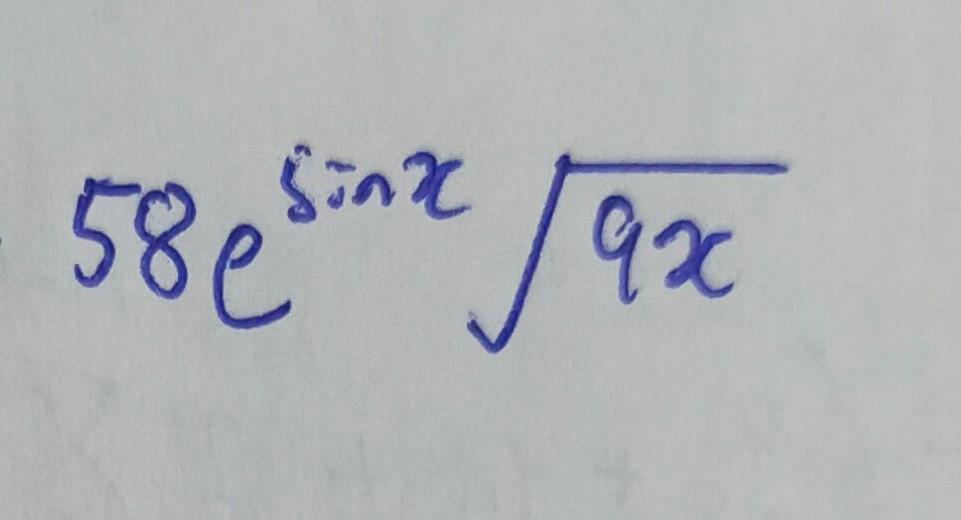 58e^{sin x} √(9x)